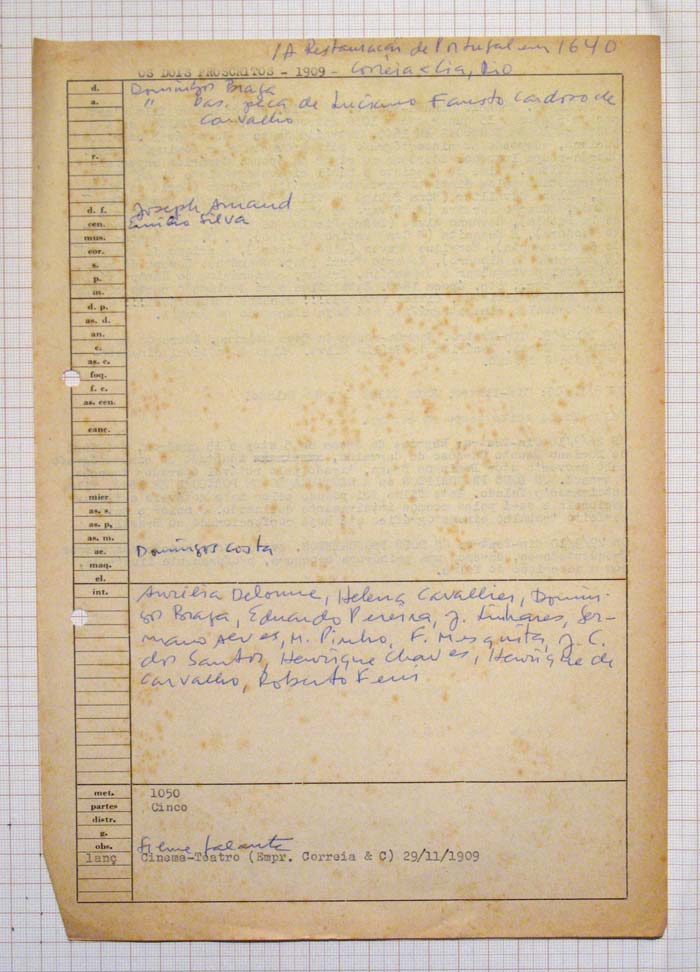 /A Restauração de Portugal em 1640
OS DOIS PROSCRITOS - 1909 - Correia & Cia, Rio
d. Domingos Braga
a. " Bas. peça de Luciano Fausto Cardoso de
Carvalho
r.
d. f. Joseph Arnaud
cen. Emilio Silva
mus.
cor.
s.
p.
m.
d. p.
as. d.
an.
c.
as. c.
foq.
f. c.
as. cen.
canc.
mier.
as. s.
as. p.
as. m.
ae. Domingos Costa
maq.
el.
int. Aurélia Delorme, Helena Cavallier, Domin-
gos Braga, Eduardo Pereira, J. Linhares, Ger-
mano Alves, M. Pinho, F. Mesquita, J. C.
dos Santos, Henrique Chaves, Henrique de
Carvalho, Roberto
met. 1050
partes Cinco
distr.
g.
obs. Filme falante
lanç Cinema-Teatro (Empr. Correia & C) 29/11/1909